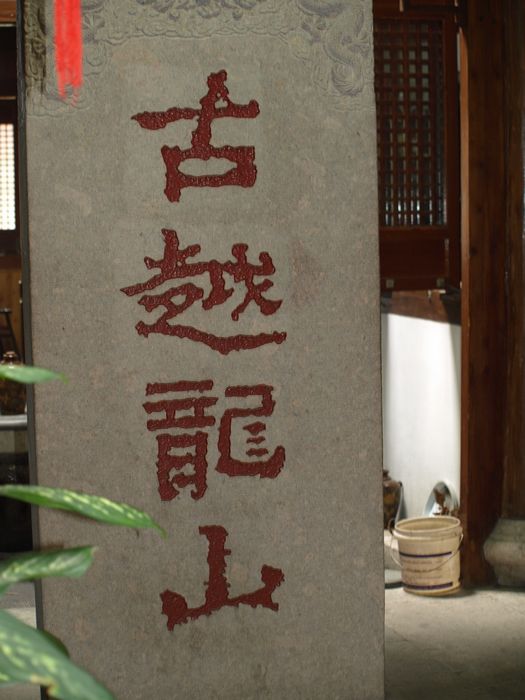 古越龍山